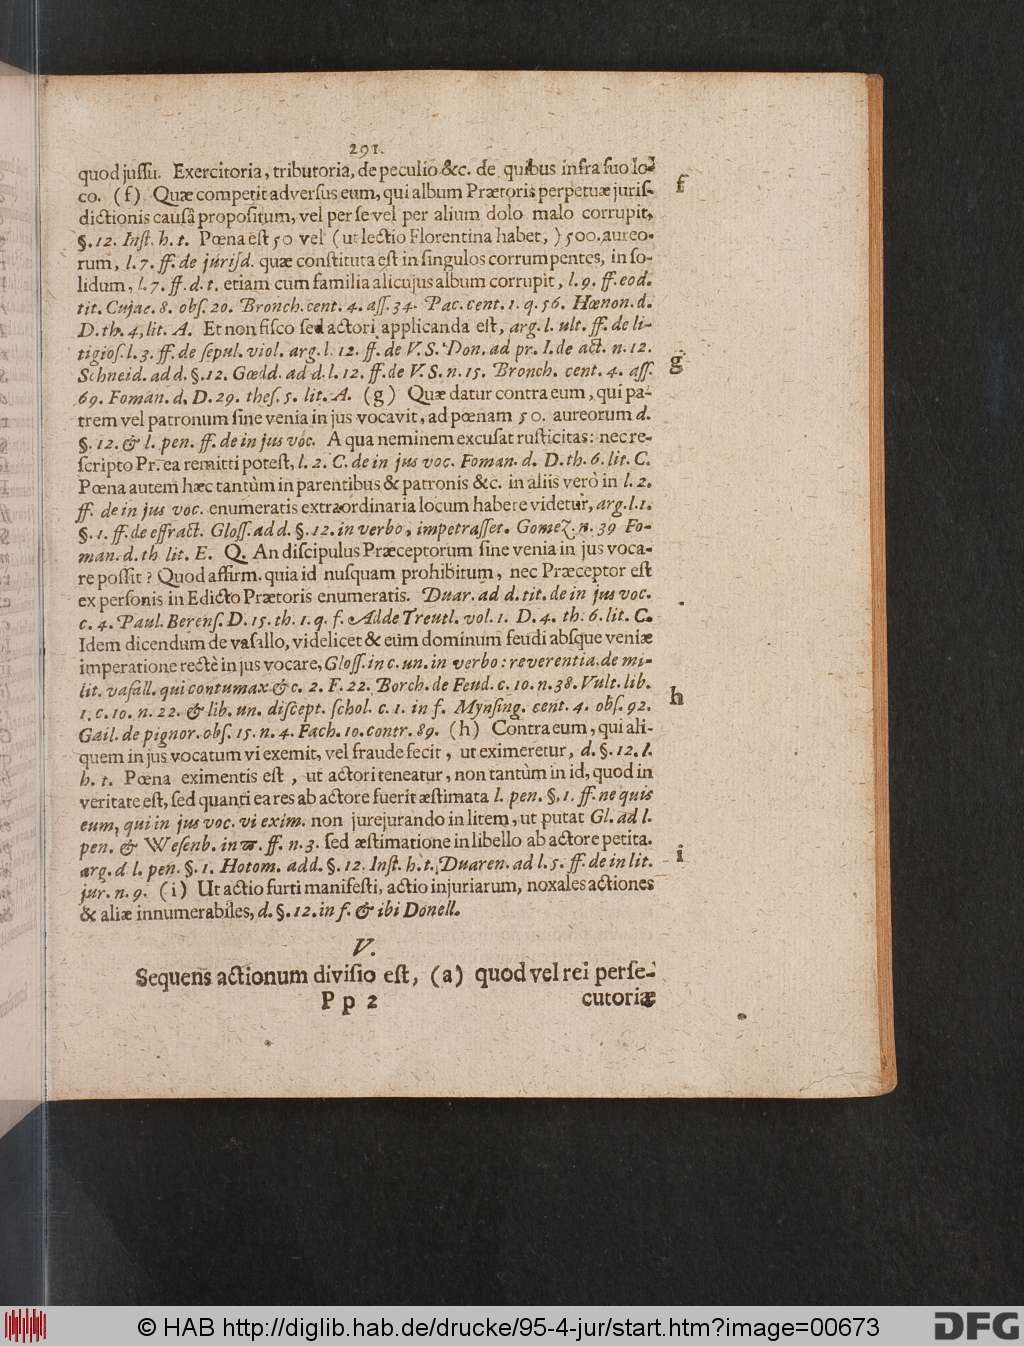 291.
quod jussu. Exercitoria, tributoria, de peculio &c. de quibus infra suo lo-
co. (f) Quæ competit adversus eum, qui album Prætoris perpetuæ juris-
dictionis causâ propositum, vel per se vel per alium dolo malo corrupit,
§. 12. Inst. h. t. Pœna est 50 vel (ut lectio Florentina habet,) 500. aureo-
rum, l. 7. ff. de jurisd. quæ constituta est in singulos corrumpentes, in so-
lidum, l. 7. ff. d. t. etiam cum familia alicujus album corrupit, l. 9. ff. eod.
tit. Cujac. 8. obs. 20. Bronch. cent. 4. ass. 34. Pac. cent. 1. q. 56. Hœnon. d.
D. th. 4, lit. A. Et non fisco sed actori applicanda est, arg. l. ult. ff. de li-
tigios. l. 3. ff. de sepul. viol. arg. l. 12. ff. de V. S. Don. ad pr. I. de act. n. 12.
Schneid. ad d. §. 12. Gœdd. ad d. l. 12. ff. de V. S. n. 15. Bronch. cent. 4. ass.
69. Foman. d. D. 29. thes. 5. lit. A. (g) Quæ datur contra eum, qui pa-
trem vel patronum sine venia in jus vocavit, ad pœnam 50. aureorum d.
§. 12. & l. pen. ff. de in jus voc. A qua neminem excusat rusticitas: nec re-
scripto Pr. ea remitti potest, l. 2. C. de in jus voc. Foman. d. D. th. 6. lit. C.
Pœna autem hæc tantùm in parentibus & patronis &c. in aliis verò in l. 2.
ff. de in jus voc. enumeratis extraordinaria locum habere videtur, arg. l. 1.
§. 1. ff. de effract. Gloss. ad d. §. 12. in verbo, impetrasset. Gomez. n. 39 Fo-
man. d. th lit. E. Q. An discipulus Præceptorum sine venia in jus voca-
re possit? Quod affirm. quia id nusquam prohibitum, nec Præceptor est
ex personis in Edicto Prætoris enumeratis. Duar. ad d. tit. de in jus voc.
c. 4. Paul. Berens. D. 15. th. 1. q. f. Adde Treutl. vol. 1. D. 4. th. 6. lit. C.
Idem dicendum de vasallo, videlicet & eum dominum feudi absque veniæ
imperatione rectè in jus vocare, Gloss. in c. un. in verbo: reverentia. de mi-
lit. vasall. qui contumax & c. 2. F. 22. Borch. de Feud. c. 10. n. 38. Vult. lib.
1. c. 10. n. 22. & lib. un. discept. schol. c. 1. in f. Mynsing. cent. 4. obs. 92.
Gail. de pignor. obs. 15. n. 4. Fach. 10. contr. 89. (h) Contra eum, qui ali-
quem in jus vocatum vi exemit, vel fraude fecit, ut eximeretur, d. §. 12. I.
h. t. Pœna eximentis est, ut actori teneatur, non tantùm in id, quod in
veritate est, sed quanti ea res ab actore fuerit æstimata l. pen. §. 1. ff. ne quis
eum, qui in jus voc. vi exim. non jurejurando in litem, ut putat Gl. ad l.
pen. & Wesenb. in ϖ. ff. n. 3. sed æstimatione in libello ab actore petita.
arg. d l. pen. §. 1. Hotom. add. §. 12. Inst. h. t. Duaren. ad l. 5. ff. de in lit.
jur. n. 9. (i) Ut actio furti manifesti, actio injuriarum, noxales actiones
& aliæ innumerabiles, d. §. 12. in f. & ibi Donell.
f
g
h
i
V.
Sequens actionum divisio est, (a) quod vel rei perse-
Pp 2
cutoriæ
© HAB http://diglib.hab.de/drucke/95-4-jur/start.htm?image=00673
DFG